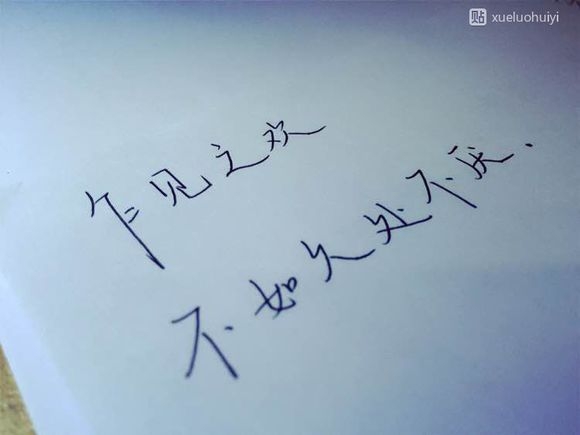 贴 xueluohuiyi
乍见之欢
不如久处不厌.